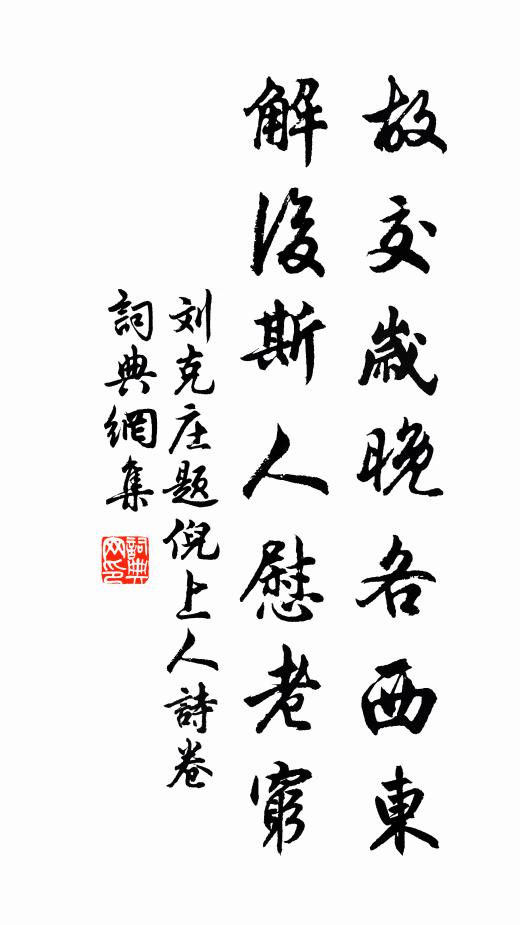 故交歲晚各西東
解後斯人慰老窮
刘克庄题倪上人詩卷
詞典網集
詞典網印